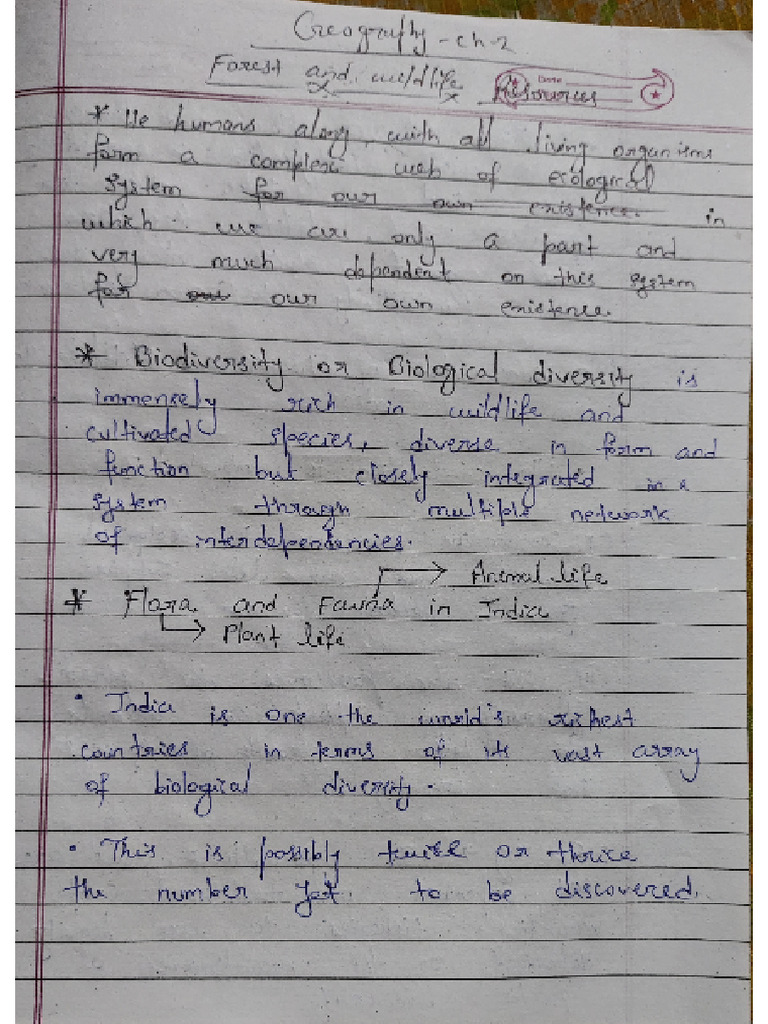 Geography - ch-2
Forest and wildlife Resources
Date
* We humans along with all living organisms
form a complex web of ecological
system for our own existence. in
which we are only a part and
very much dependent on this system
for our own existence.
* Biodiversity or Biological diversity is
immensely rich in wildlife and
cultivated species, diverse in form and
function but closely integrated in a
system through multiple network
of interdependencies.
→ Animal life
* Flora and Fauna in India
→ Plant life
• India is one the world's richest
countries in terms of its vast array
of biological diversity.
• This is possibly twice or thrice
the number yet to be discovered.